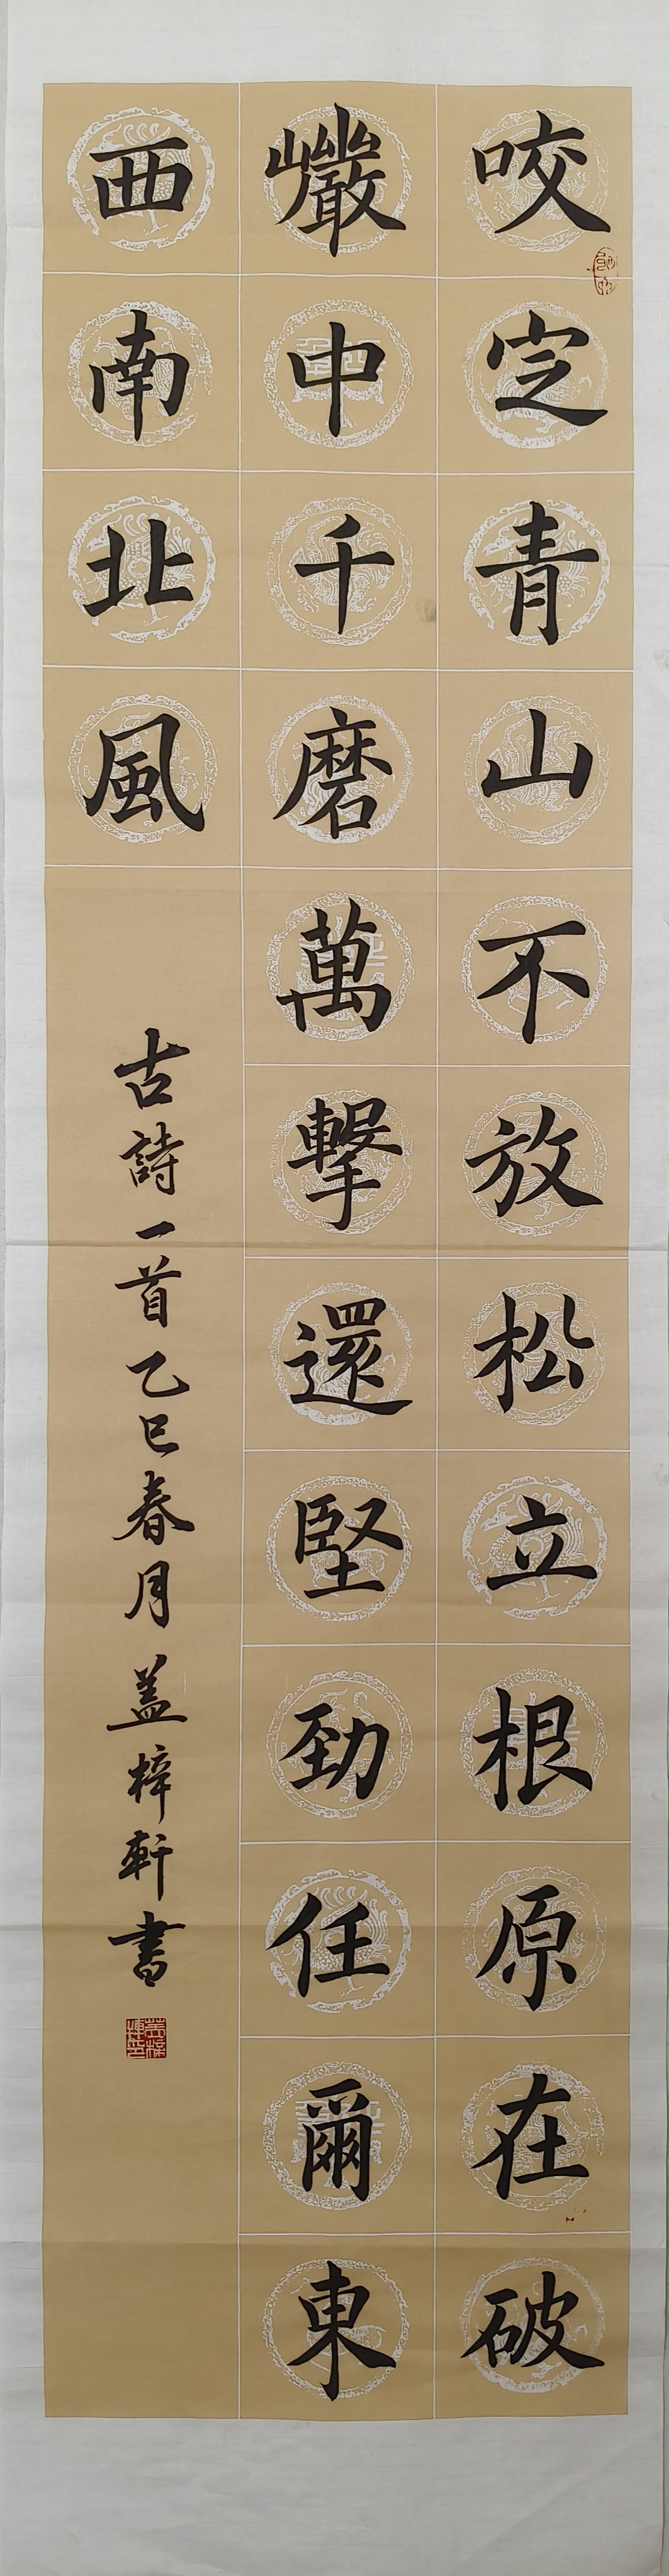 咬定青山不放松立根原在破
巖中千磨萬擊還堅勁任爾東
西南北風
古詩一首乙巳春月蓋梓軒書